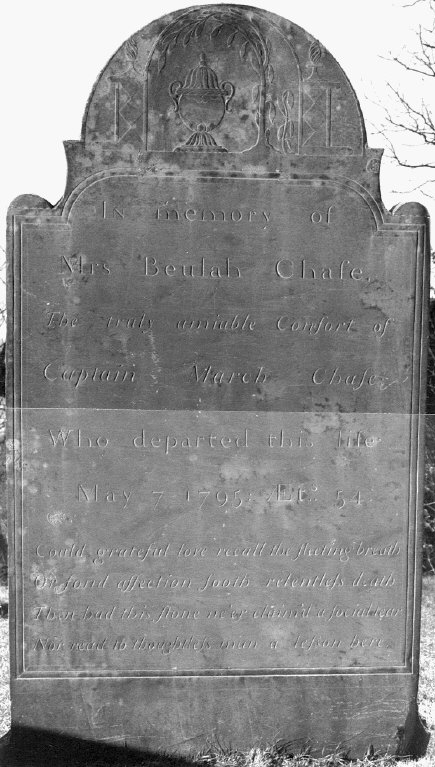 In memory of
Mrs Beulah Chaſe,
The truly amiable Conſort of
Captain March Chaſe,
Who departed this life
May 7 1795: Æt.º 54.
Could grateful love recall the fleeting breath
Or fond affection ſooth relentleſs death
Then had this ſtone ne'er claim'd a ſocial tear
Nor read to thoughtleſs man a leſson here.